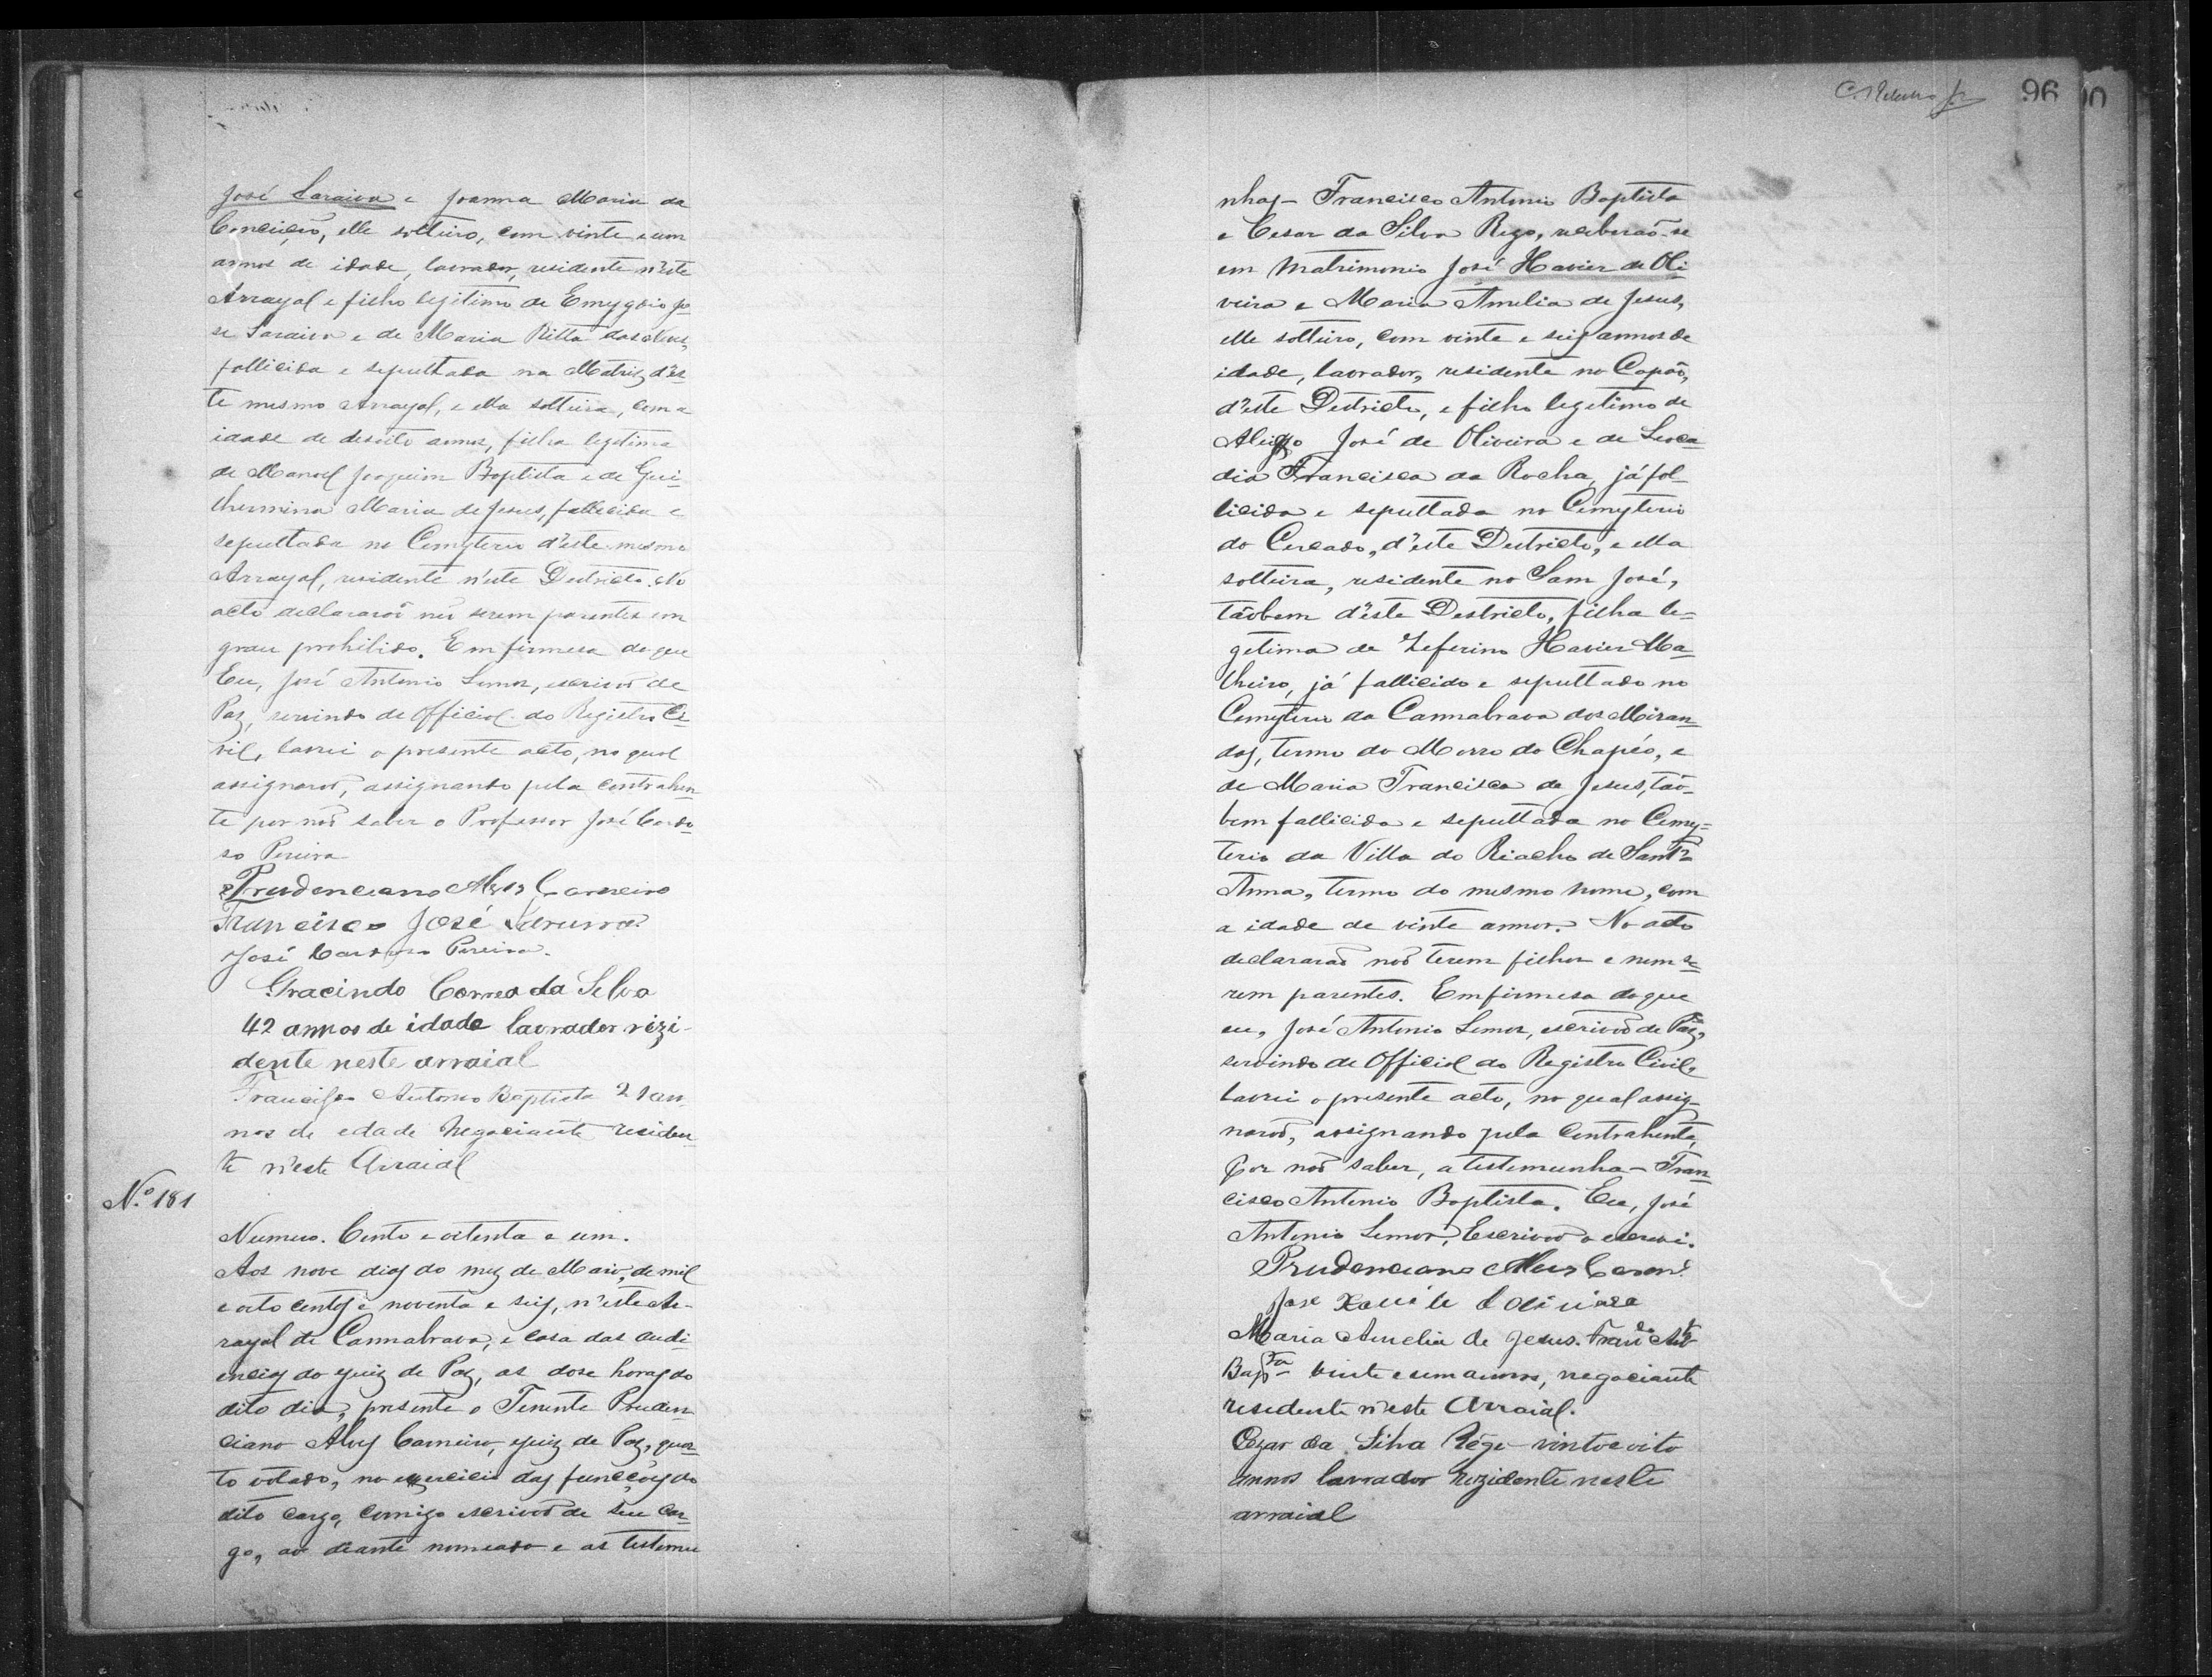 José Saraiva e Joanna Maria da
Conceição, elle solteiro, com vinte e um
annos de idade, lavrador, residente n'este
Arrayal e filho legitimo de Emygdio Jo
se Saraiva e de Maria Ritta das
fallicida e sepultada na Matriz d'es
te mesmo Arrayal, e ella solteira, com a
idade de desoito annos, filha legitima
de Manoel Joaquim Baptista e de Gui-
lhermina Maria de Jesus, fallecida e
sepultada no Cemyterio d'este mesmo
Arrayal, residente n'este Destricto. No
acto declararaõ naõ serem parentes em
grau prohibido. Em firmesa do que
Eu, José Antonio Lemos, escrivaõ de
Paz, servindo de Official do Registro Ci-
vil, lavrei o presente acto, no qual
assignaraõ, assignando pela contrahen-
te por naõ saber o Professor José Cardo-
so Pereira
Prudenciano Alves Carneiro
Francisco José Saraiva
José Cardoso Pereira.
Gracindo Correa da Silva
42 annos de idade lavrador rezi-
dente neste arraial
Francisco Antonio Baptista 21 an-
nos de edade Negociante residen-
te n'este Arraial
N.º 181
Numero. Cento e oitenta e um.
Aos nove dias do mez de Maio, de mil
e oito centos e noventa e seis, n'este Ar-
rayal de Cannabrava, e casa das audi-
encias do Juiz de Paz, as dose horas do
dito dia, presente o Tenente Pruden-
ciano Alves Carneiro, Juiz de Paz, quar-
to votado, no exercicio das funcções do
dito cargo, comigo escrivaõ de seu car-
go, ao diante nomeado e as testemu
96
nhas – Francisco Antonio Baptista
e Cesar da Silva Rego, receberaõ-se
em Matrimonio José Xavier de Oli-
veira e Maria Amelia de Jesus,
elle solteiro, com vinte e seis annos de
idade, lavrador, residente no Capaõ,
d'este Destricto, e filho legetimo de
José de Oliveira e de Leoca
dia Francisca da Rocha, já fal-
licida e sepultada no Cemyterio
do Cercado, d'este Destricto, e ella
solteira, residente no Sam José,
taõbem d'este Destricto, filha le-
getima de Zeferino Xavier Ma-
lheiro, já fallicido e sepultado no
Cemyterio da Cannabrava dos Miran-
das, termo do Morro do Chapéo, e
de Maria Francisca de Jesus, taõ-
bem fallicida e sepultada no Cemy-
terio da Villa do Riacho de Sant'
Anna, termo do mesmo nome, com
a idade de vinte annos. No acto
declararaõ naõ terem filhos e nem se-
rem parentes. Em firmesa do que
eu, José Antonio Lemos, escrivaõ de Paz,
servindo de Official do Registro Civil,
lavrei o presente acto, no qual assig-
naraõ, assignando pela Contrahente,
por naõ saber, a testemunha – Fran-
cisco Antonio Baptista. Eu, José
Antonio Lemos, Escrivaõ o escrevi.
Prudenciano Alves Carnr.º
Jose Xavie de Oliviera
Maria Amelia de Jesus. Fran.co Ant.º
Bap.ta vinte e um annos, negociante
residente n'este Arraial.
Cezar da Silva Rêgo vinte e oito
annos lavrador rezidente neste
arraial